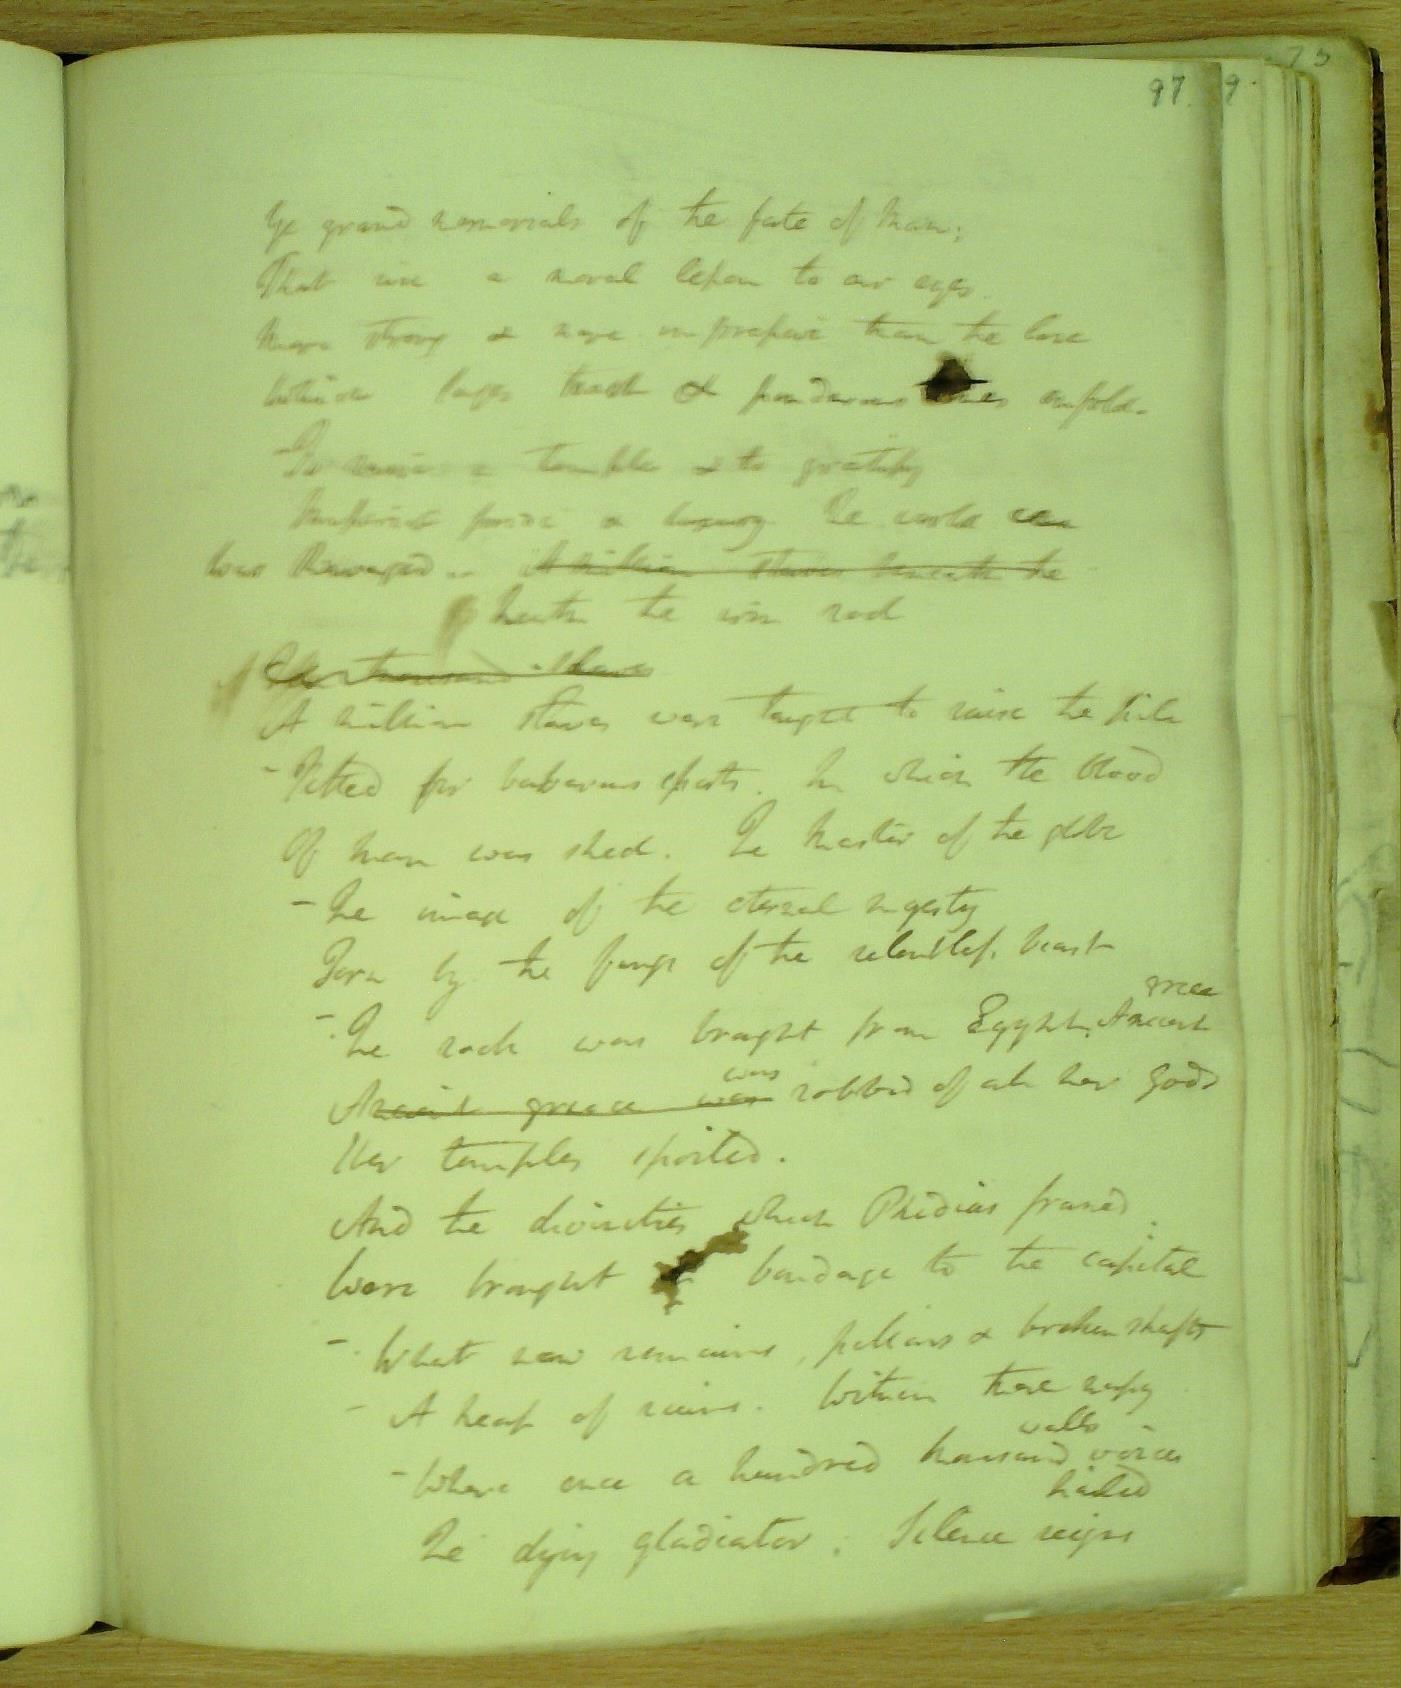 97. 9.
Ye grand memorials of the fate of Man;
That give a moral lesson to our eyes.
More strong & more impressive than the lore
Which pages teach & ponderous unfold.
To raise a temple & to gratify
Imperial pride & luxury the world
was Ravaged. A million slaves beneath the
beneath the iron rod
thousand slaves
A million slaves were taught to raise the pile
- Fitted for barbarous sports. In which the blood
Of man was shed. The Master of the globe
- The image of the eternal majesty
Torn by the fangs of the relentless beast
greece
- The rock was brought from Egypt. Ancient
was
Ancient greece was robbed of all her Gods
Her temples spoiled.
And the divinities which Phidias framed
Were brought bondage to the capital
- What now remains, pillars & broken shafts
- A heap of ruins. Within these
walls
- Where once a hundred thousand voices
hailed
The dying gladiator; Silence reigns